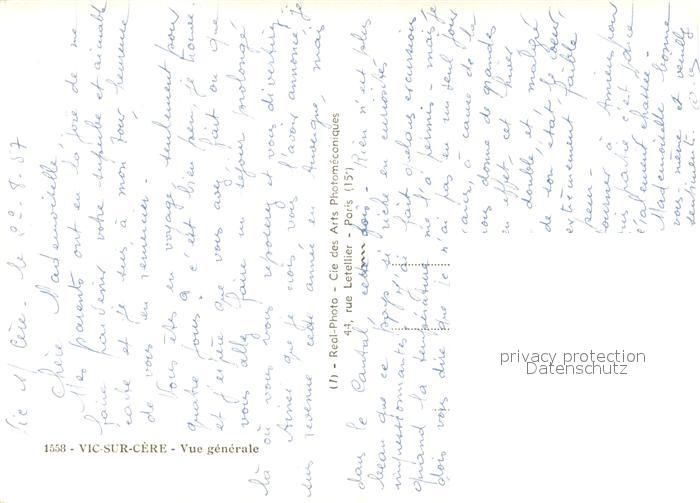 Vic s/ Cère - le 22.8.57
Chère Mademoiselle,
Mes parents ont eu la joie de me
faire parvenir votre superbe et aimable
carte et je suis à mon tour heureuse
de vous en remercier.
Vous êtes en voyage seulement pour
quatre jours, c'est bien peu, je trouve.
et j'espère que vous avez fait ou que
vous allez faire un séjour prolongé
là où vous vous reposerez et vous divertirez
Ainsi que je crois vous l'avoir annoncé je
suis revenue cette année en Auvergne, mais
dans le Cantal, cette fois. Rien n'est plus
beau que ce pays si riche en curiosités
impressionnantes. J'ai fait quelques excursions
quand la température me l'a permis - mais je
dois vous dire que je n'ai pas eu un seul jour
à cause de
vous donne de grandes
en effet, cet hiver
double, et malgré
de son état, le cœur
extrêmement faible
peu -
à Amiens pour
partie c'est faire
également
Mademoiselle bonne
vous même et veuillez
sentiments
(7) - Real-Photo - Cie des Arts Photomécaniques
44, rue Letellier - Paris (15e)
1558 - VIC-SUR-CÈRE - Vue générale
privacy protection
Datenschutz